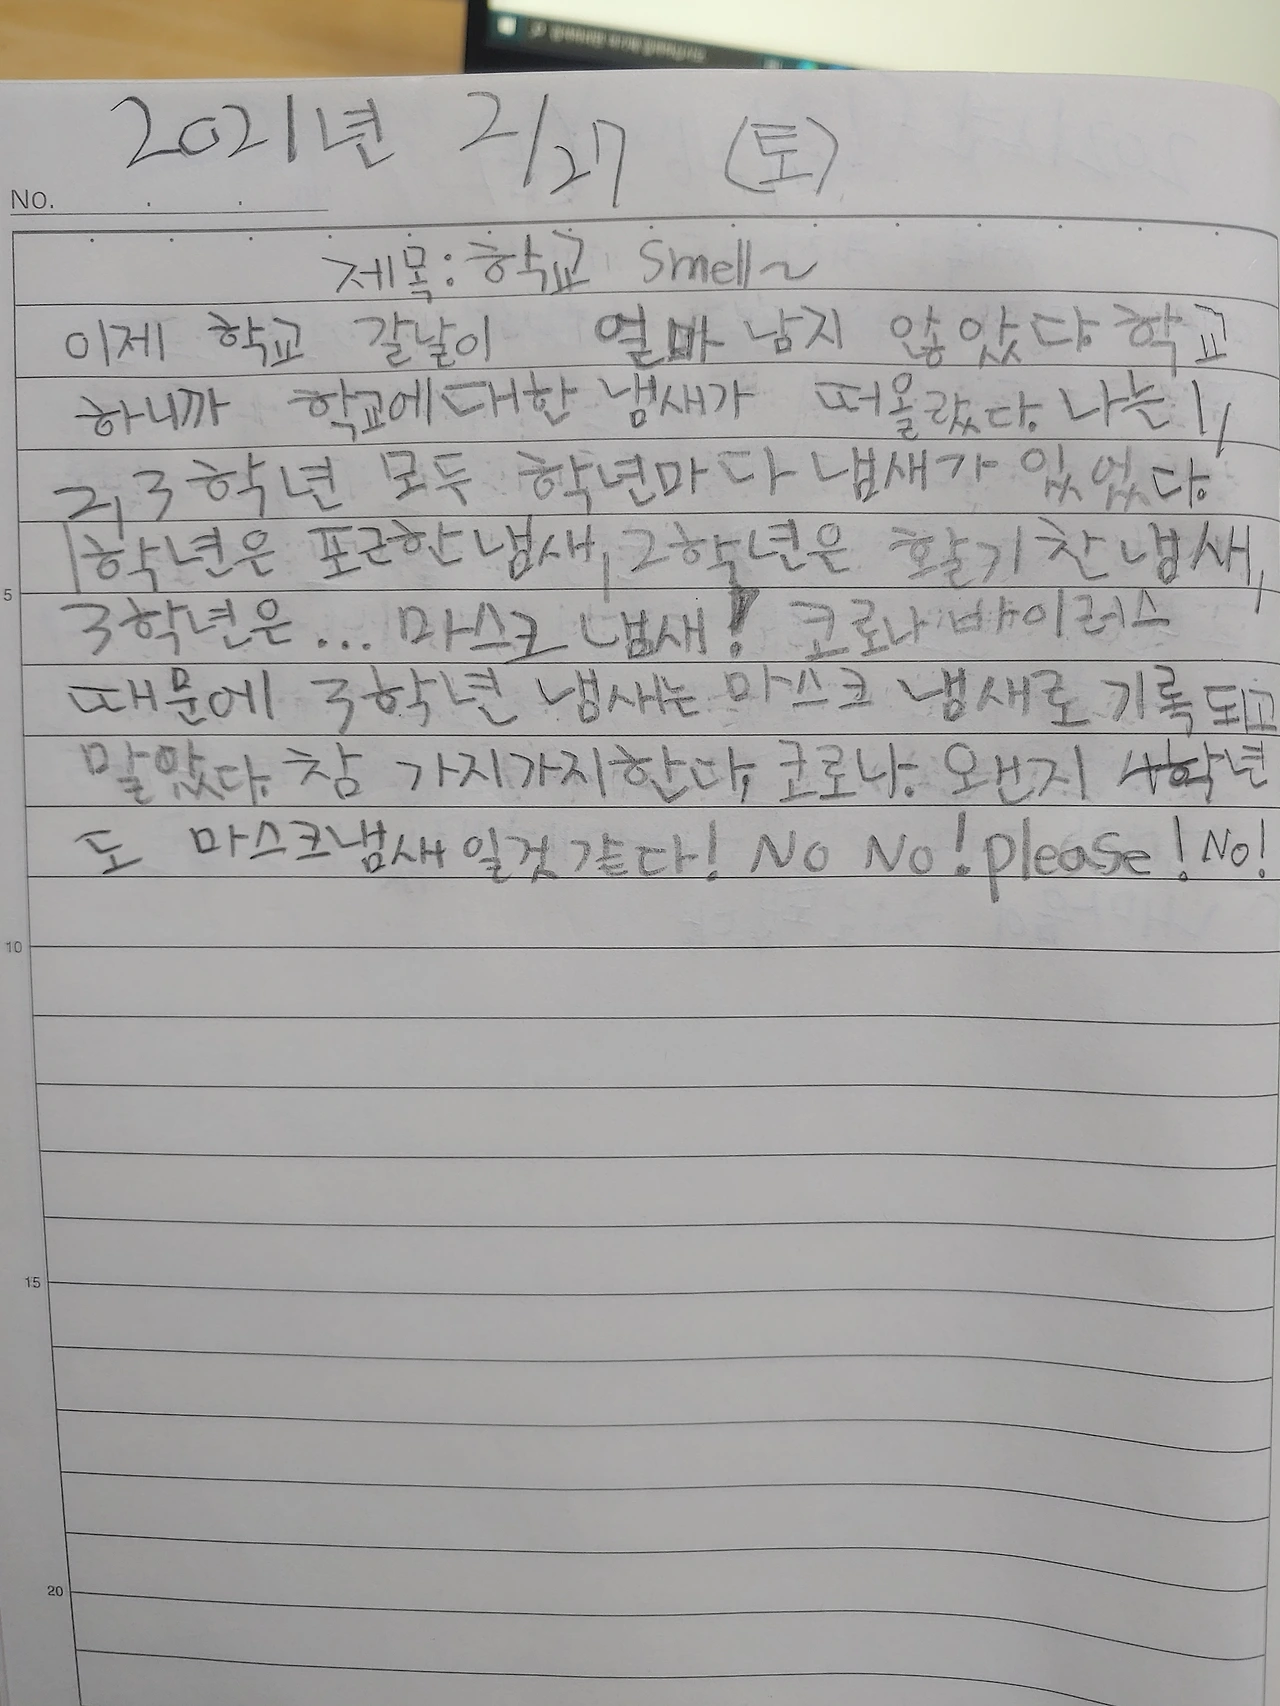 2021년 2/27 (토)
NO.
제목:학교 Smell~
이제 학교 갈날이 열마 남지 않았다. 학교
하니까 학교에대한 냄새가 떠올랐다. 나는 1,
2, 3학년 모두 학년마다 냄새가 있었다.
1학년은 포근한냄새, 2학년은 활기찬냄새,
5
3학년은... 마스크 냄새! 코로나바이러스
때문에 3학년 냄새는 마스크 냄새로 기록되고
말았다. 참 가지가지한다, 코로나. 왠지 4학년
도 마스크냄새일것 같다! No No! please! No!
10
15
20